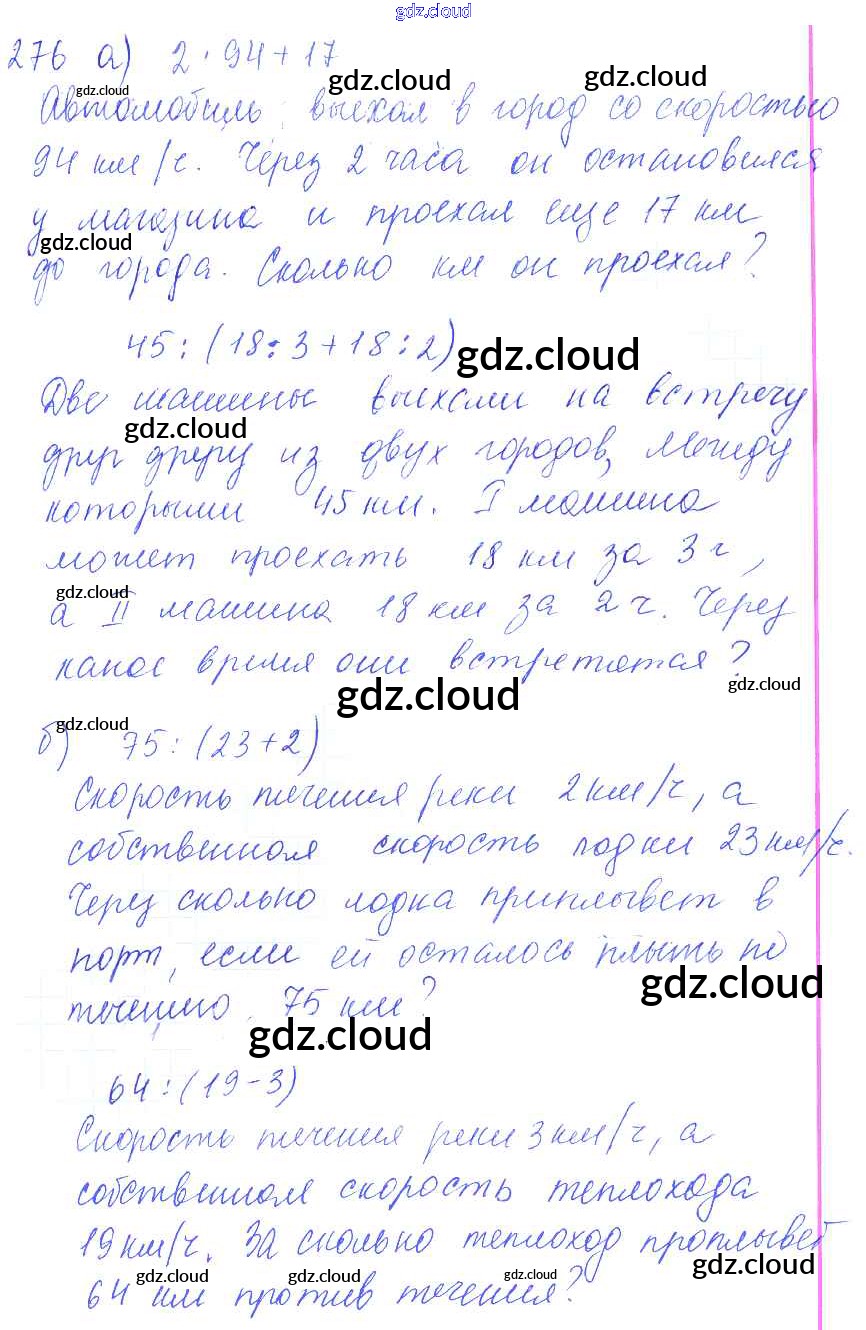 gdz.cloud
276 а) 2 · 94 + 17
gdz.cloud gdz.cloud gdz.cloud
Автомобиль выехал в город со скоростью
94 км/ч. Через 2 часа он остановился
у магазина и проехал еще 17 км
gdz.cloud
до города. Сколько км он проехал?
45 : (18 : 3 + 18 : 2)
gdz.cloud
Две машины выехали на встречу
gdz.cloud
друг другу из двух городов, между
которыми 45 км. I машина
может проехать 18 км за 3 ч,
gdz.cloud
а II машина 18 км за 2 ч. Через
какое время они встретятся?
gdz.cloud gdz.cloud
gdz.cloud
б) 75 : (23 + 2)
Скорость течения реки 2 км/ч, а
собственная скорость лодки 23 км/ч.
Через сколько лодка приплывет в
порт, если ей осталось плыть по
gdz.cloud
течению 75 км?
gdz.cloud
64 : (19 - 3)
Скорость течения реки 3 км/ч, а
собственная скорость теплохода
19 км/ч. За сколько теплоход проплывет
gdz.cloud
gdz.cloud gdz.cloud gdz.cloud
64 км против течения?